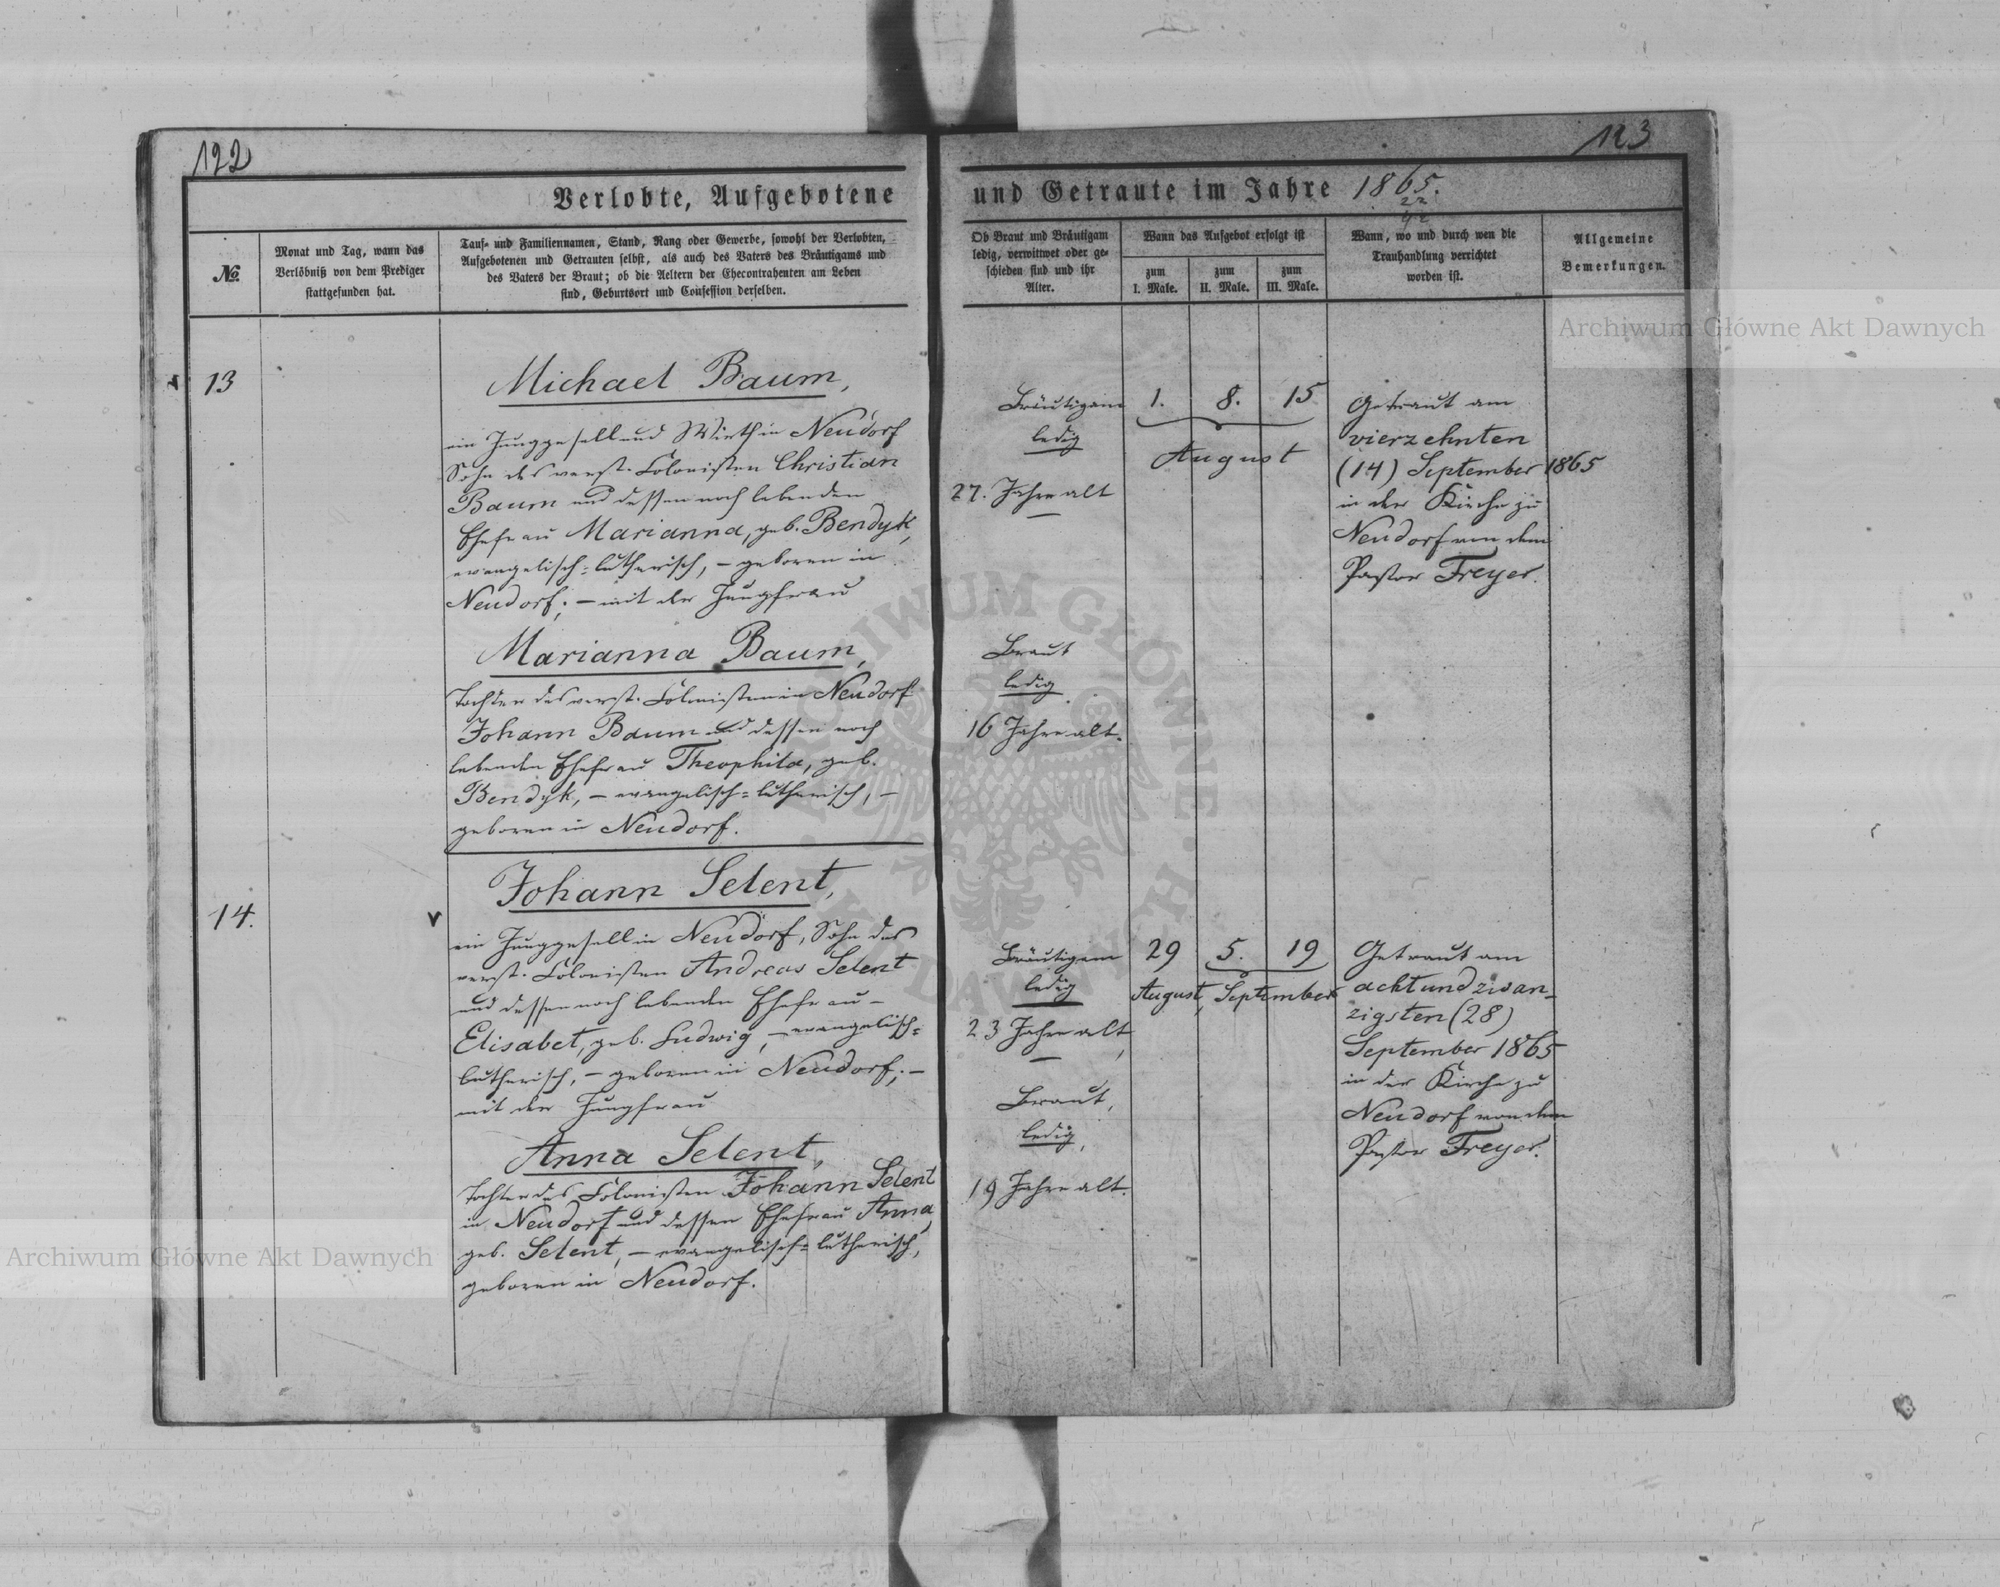 122
Verlobte, Aufgebotene
№.
Monat und Tag, wann das
Verlöbniß von dem Prediger
stattgefunden hat.
Tauf- und Familiennamen, Stand, Rang oder Gewerbe, sowohl der Verlobten,
Aufgebotenen und Getrauten selbst, als auch des Vaters des Bräutigams und
des Vaters der Braut; ob die Aeltern der Ehecontrahenten am Leben
sind, Geburtsort und Confession derselben.
13
Michael Baum,
ein Junggesell und Wirth in Neudorf
Sohn des verst. Colonisten Christian
Baum und dessen noch lebenden
Ehefrau Marianna, geb. Bendyk,
evangelisch-lutherisch, – geboren in
Neudorf; – mit der Jungfrau
Marianna Baum,
Tochter des verst. Colonisten in Neudorf
Johann Baum und dessen noch
lebenden Ehefrau Theophila, geb.
Bendyk, – evangelisch-lutherisch, –
geboren in Neudorf.
14.
Johann Selent,
ein Junggesell in Neudorf, Sohn des
verst. Colonisten Andreas Selent
und dessen noch lebenden Ehefrau –
Elisabet, geb. Ludwig, – evangelisch-
lutherisch, – geboren in Neudorf; –
mit der Jungfrau
Anna Selent,
Tochter des Colonisten Johann Selent
in Neudorf und dessen Ehefrau Anna,
geb. Selent, – evangelisch-lutherisch,
geboren in Neudorf.
123
und Getraute im Jahre 1865.
22
42
Ob Braut und Bräutigam
ledig, verwittwet oder ge-
schieden sind und ihr
Alter.
Wann das Aufgebot erfolgt ist
zum
I. Male.
zum
II. Male.
zum
III. Male.
Wann, wo und durch wen die
Trauhandlung verrichtet
worden ist.
Allgemeine
Bemerkungen.
Bräutigam
ledig
27. Jahre alt
1. 8. 15
August
Getraut am
vierzehnten
(14) September 1865
in der Kirche zu
Neudorf von dem
Pastor Freyer.
Braut
ledig
16 Jahre alt.
Bräutigam
ledig
23 Jahre alt,
29 5. 19
August, September
Getraut am
achtundzwan-
zigsten (28)
September 1865
in der Kirche zu
Neudorf von dem
Pastor Freyer.
Braut,
ledig,
19 Jahre alt.
Archiwum Główne Akt Dawnych
Archiwum Główne Akt Dawnych
ARCHIWUM GŁÓWNE AKT DAWNYCH